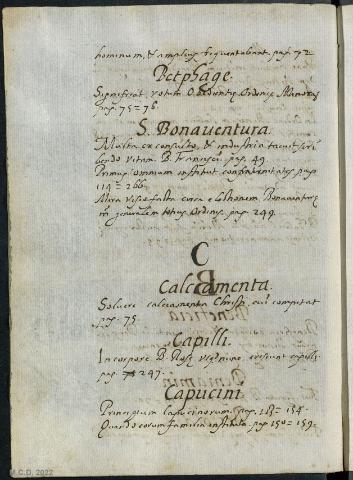 hominum, & amplius frequentabant. pag. 72
Betphage.
Significat, votum Obedientiæ Ordinis Minorum
pag. 75 = 76.
S. Bonaventura.
Multa ex consulto, & industria tacuit scri
bendo vitam B. Francisci. pag. 49.
Primus omnium instituit confraternitates pag
114 = 266.
Mira visio facta circa electionem Bonaventuræ
in generalem totius Ordinis. pag. 249.
C
Calceamenta.
Solvere calceamenta Christi, cui competat
pag. 75
Capilli.
In corpore B. Rosæ virginis, crescunt capilli.
pag. 247.
Capucini.
Principium Capucinorum. pag. 113 = 154.
Quando eorum familia instituta. pag. 150 = 159.
M.C.D. 2022